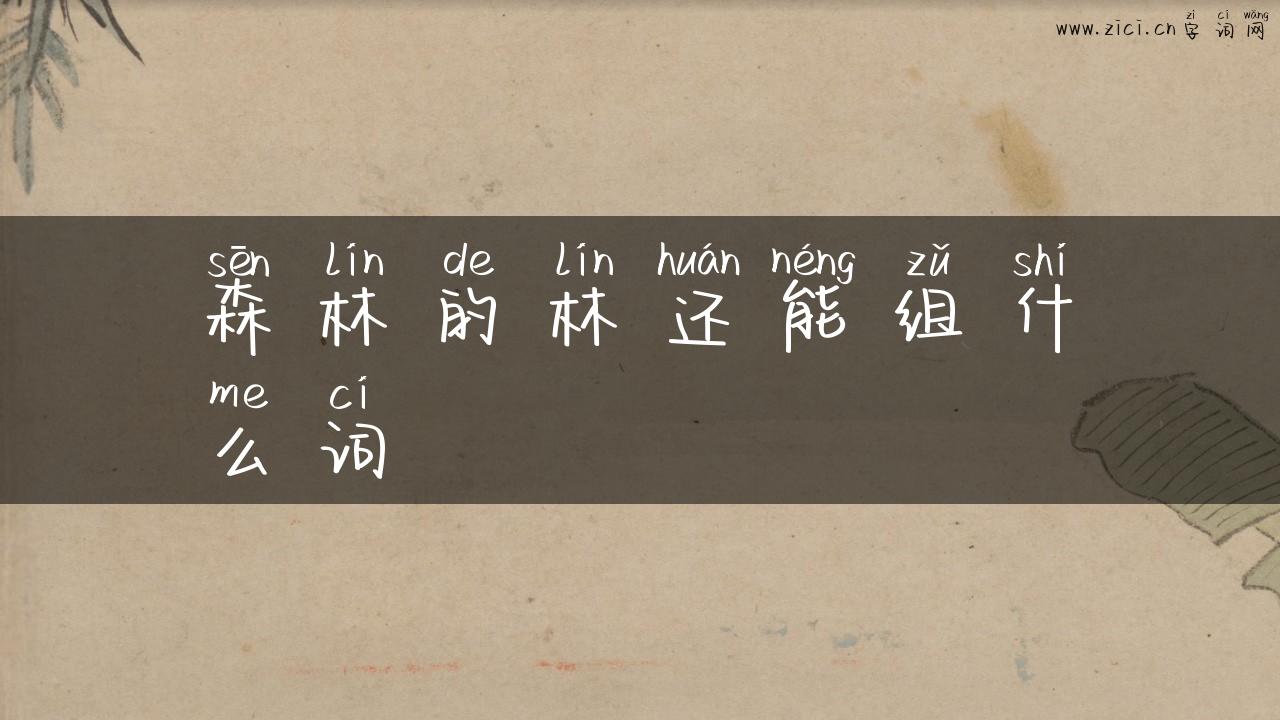 zì cí wǎng
www.zici.cn 字词网
sēn lín de lín huán néng zǔ shí
森林的林还能组什
me cí
么词